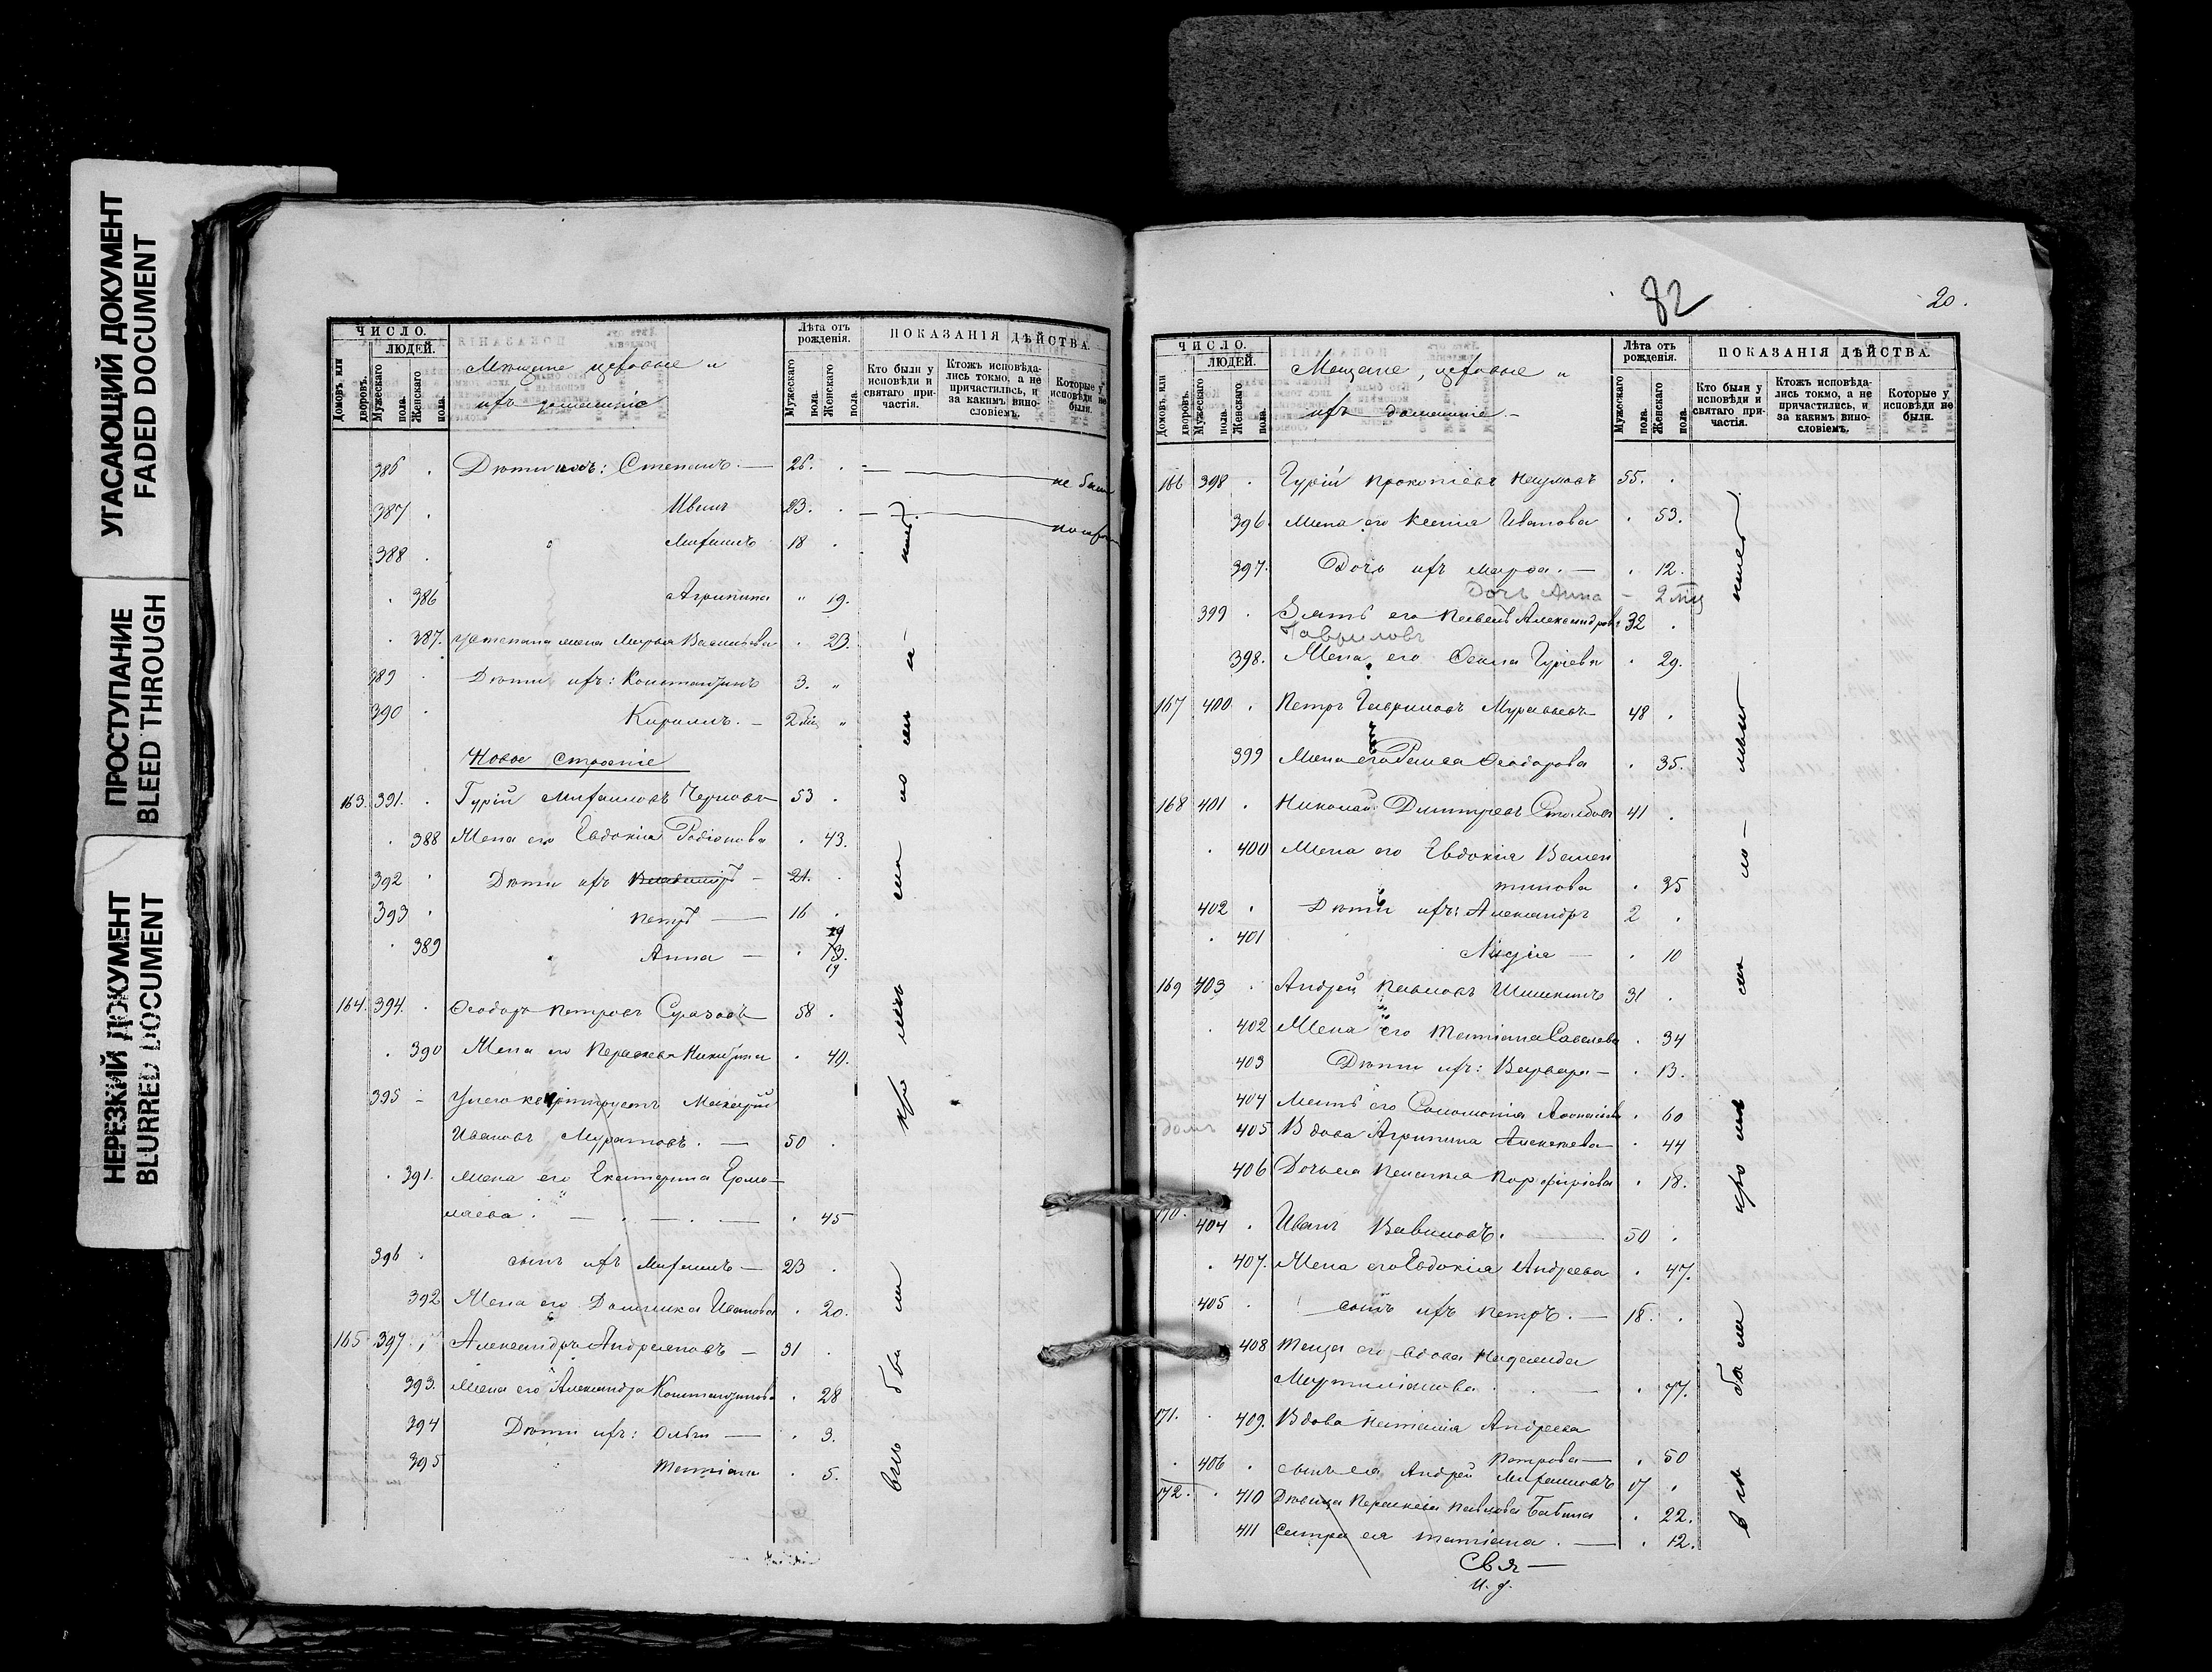 УГАСАЮЩИЙ ДОКУМЕНТ
FADED DOCUMENT
ПРОСТУПАНИЕ
BLEED THROUGH
НЕРЕЗКИЙ ДОКУМЕНТ
BLURRED DOCUMENT
ЧИСЛО.
ЛЮДЕЙ.
Домовъ или дворовъ.
Мужескаго пола.
Женскаго пола.
Мещане, цеховые и
ихъ домашніе
Лѣта отъ рожденія.
Мужескаго пола.
Женскаго пола.
ПОКАЗАНІЯ ДѢЙСТВА.
Кто были у исповѣди и святаго причастія.
Ктожъ исповѣдались токмо, а не причастились, и за какимъ винословіемъ.
Которые у исповѣди не были.
386 Дѣти ихъ: Степанъ. — 26. не были
387 Иванъ 23.
388 Михаилъ 18
386 Агрипина 19.
387. жена Марья Васильева 23.
389 Дѣти ихъ: Константинъ 3.
390 Кириллъ. — 2 мѣс
Новое строеніе
163. 391. Гурій Михаиловъ Черновъ 53
388 Жена его Евдокія Родіонова 43.
392 Дѣти ихъ Владиміръ — 21.
393 Петръ — 16
389 Анна — 13. 19
164. 394. Ѳеодоръ Петровъ 58
390 Жена его Параскева Никитина 40.
395 У него квартируетъ Макарій
Ивановъ Муратовъ. — 50
391. Жена его Екатерина Ермо-
лаева. — 45
396 сынъ ихъ Михаилъ — 23
392 Жена его Домника Иванова 20.
165 397 Александръ Андреяновъ — 31
393. Жена его Александра Константинова 28
394 Дѣти ихъ: Ольга — 3.
395 Татіана 5.
все были при
82
20.
ЧИСЛО.
ЛЮДЕЙ.
Домовъ или дворовъ.
Мужескаго пола.
Женскаго пола.
Мещане, цеховые и
ихъ домашніе. —
Лѣта отъ рожденія.
Мужескаго пола.
Женскаго пола.
ПОКАЗАНІЯ ДѢЙСТВА.
Кто были у исповѣди и святаго причастія.
Ктожъ исповѣдались токмо, а не причастились, и за какимъ винословіемъ.
Которые у исповѣди не были.
166 398 Гурій Прокопіевъ Наумовъ 55.
396. Жена его Ксенія Иванова 53.
397. Дочь ихъ Марѳа. — 12.
Дочь Анна — 2 мѣс
399 Зять его Павелъ Александровъ 32
Гавриловъ
398. Жена его Гуріева 29.
167 400 Петръ Гавриловъ Муравьевъ 48
399 Жена его Раиса Ѳеодорова 35.
168 401 Николай Димитріевъ Столбовъ 41
400 Жена его Евдокія Вален
тинова 35
402 Дѣти ихъ: Александръ 2
401 Лидія — 10
169 403 Андрей Павловъ Шишкинъ 31
402 Жена его Татіана Савельева 34
403 Дѣти ихъ: Варвара — 13.
404 Мать его Соломонія Аѳонасіева 60
домъ 405 Вдова Агрипина Алексѣева 44
406 Дочь ея Пелагія Порфиріева 18.
170. 404 Иванъ Вавиловъ. 50
407. Жена его Евдокія Андреева 47.
405 сынъ ихъ Петръ. — 18.
408 Теща его вдова Надежда
Мартиміанова — 77.
171. 409. Вдова Наталія Андреева
Петрова — 50
406 сынъ ея Андрей Михаиловъ 17
172. 410 Дѣвица Параскева Павлова Бабина 22.
411 Сестра ея Татіана. — 12.
все были при
Свя—